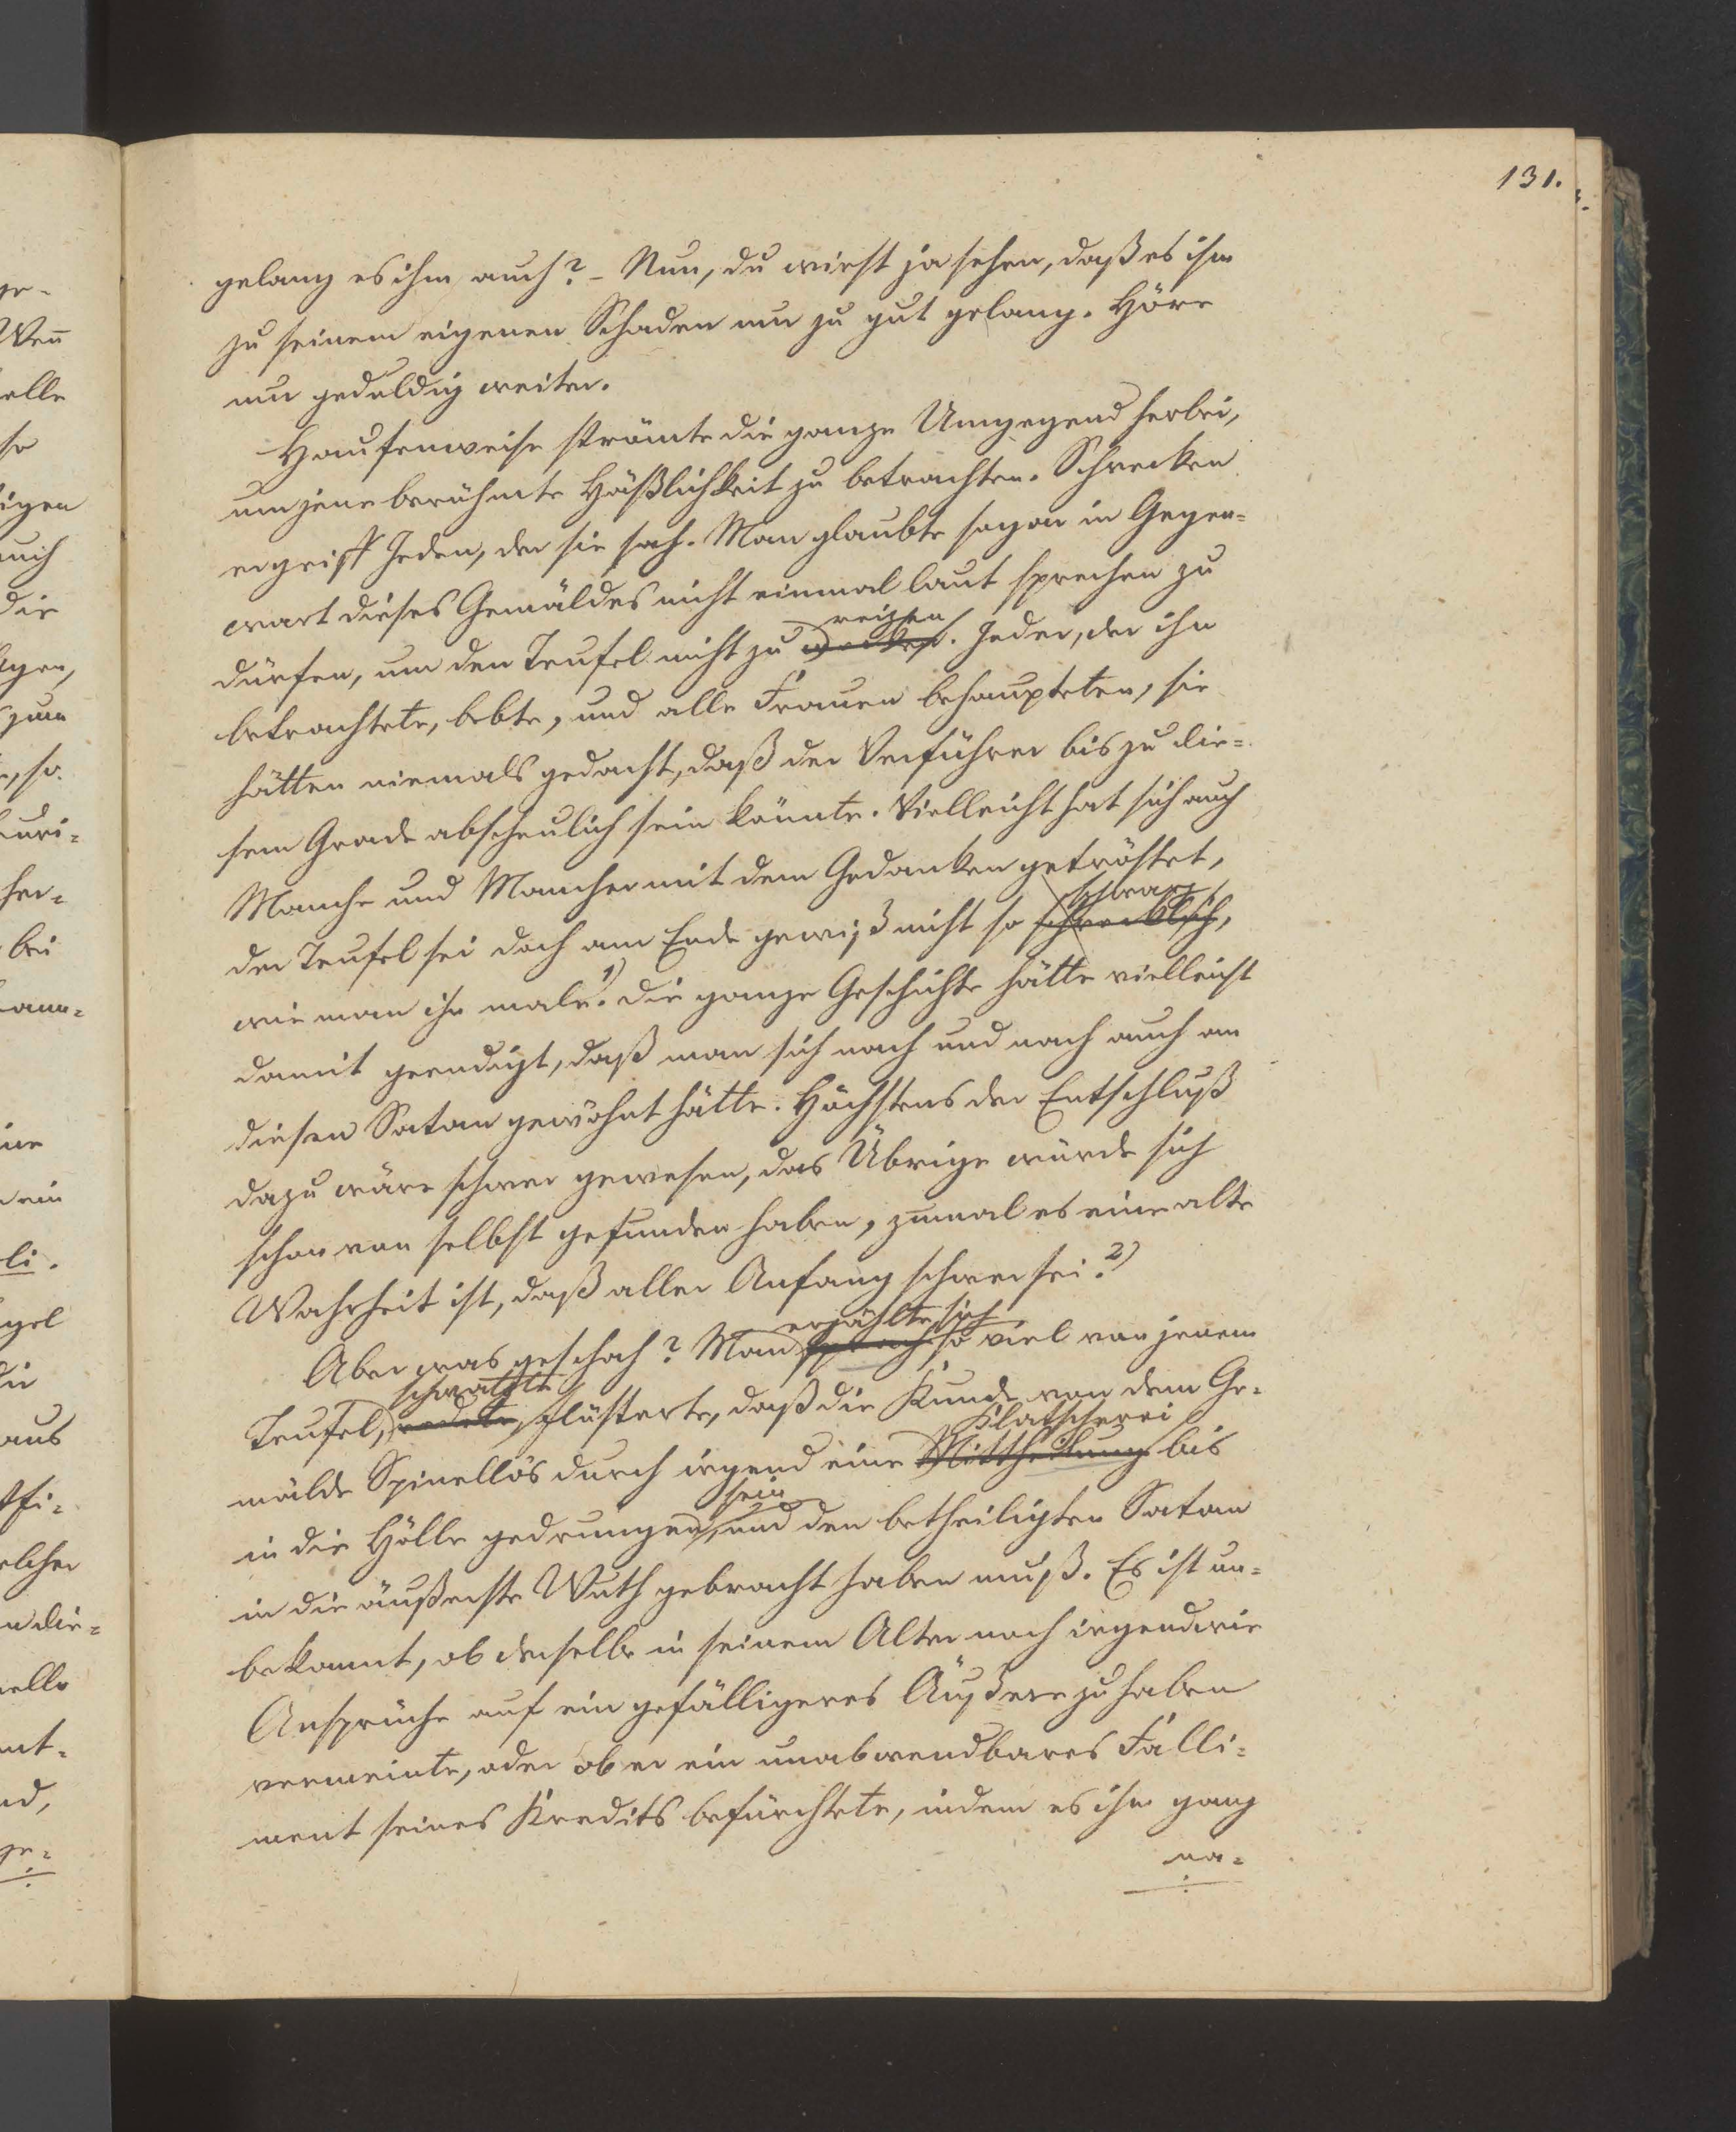 131.
gelang es ihm auch? – Nun, du wirst ja sehen, daß es ihm
zu seinem eigenen Schaden nur zu gut gelang. Höre
nur geduldig weiter.
Haufenweise strömte die ganze Umgegend herbei,
um jene berühmte Häßlichkeit zu betrachten. Schrecken
ergriff Jeden, der sie sah. Man glaubte sogar in Gegen=
wart dieses Gemäldes nicht einmal laut sprechen zu
reizen
dürfen, um den Teufel nicht zu wecken. Jeder, der ihn
betrachtete, bebte, und alle Frauen behaupteten, sie
hätten niemals gedacht, daß der Verführer bis zu die=
sem Grade abscheulich sein könnte. Vielleicht hat sich auch
Manche und Mancher mit dem Gedanken getröstet,
schwarz
der Teufel sei doch am Ende gewiß nicht so schrecklich,
wie man ihn male. 1) Die ganze Geschichte hätte vielleicht
damit geendigt, daß man sich nach und nach auch an
diesen Satan gewöhnt hätte. Höchstens der Entschluß
dazu wäre schwer gewesen, das Übrige würde sich
schon von selbst gefunden haben, zumal es eine alte
Wahrheit ist, daß aller Anfang schwer sei. 2)
erzählte sich
Aber was geschah? Man sprach so viel von jenem
schwatzte
Teufel, redete, flüsterte, daß die Kunde von dem Ge=
Klatscherei
mälde Spinello's durch irgend eine Mittheilung bis
sein
in die Hölle gedrungen, und den betheiligten Satan
in die äußerste Wuth gebracht haben muß. Es ist un=
bekannt, ob derselbe in seinem Alter noch irgendwie
Ansprüche auf ein gefälligeres Äußere zu haben
vermeinte, oder ob er ein unabwendbares Falli=
ment seines Kredits befürchtete, indem es ihm ganz
na=